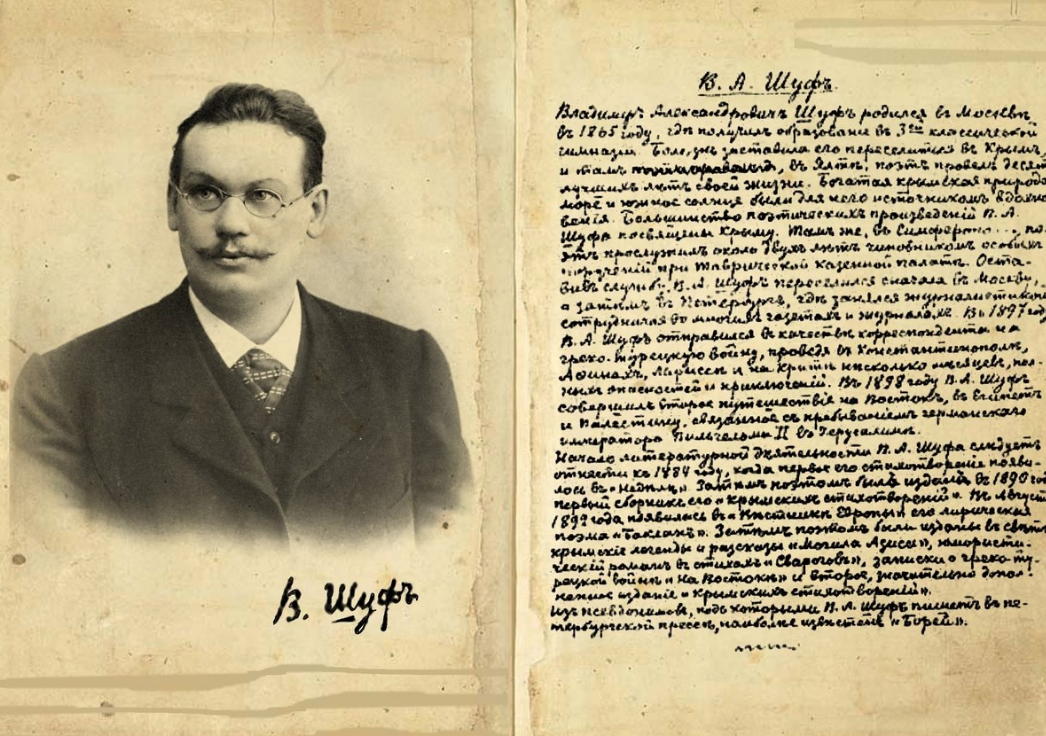 В. Шуфъ
В. А. Шуфъ.
Владимиръ Александровичъ Шуфъ родился въ Москвѣ
въ 1865 году, гдѣ получилъ образованіе въ 3ей классической
гимназіи. Болѣзнь заставила его переселиться въ Крымъ,
и тамъ, въ Ялтѣ, поэтъ провелъ десят
лучшихъ лѣтъ своей жизни. Богатая крымская природа
море и южное солнце были для него источникомъ вдохно
венія. Большинство поэтическихъ произведеній В. А.
Шуфа посвящены Крыму. Тамъ же, въ Симферопо..., по-
этъ прослужилъ около двухъ лѣтъ чиновникомъ особыхъ
порученій при Таврической казенной палатѣ. Оста-
вивъ службу, В. А. Шуфъ переселился сначала въ Москву,
а затѣмъ въ Петербургъ, гдѣ занялся журналистикою
сотрудничая во многихъ газетахъ и журналахъ. Въ 1897 году
В. А. Шуфъ отправился въ качествѣ корреспондента на
греко-турецкую войну, проведя въ Константинополѣ,
Афинахъ, Лариссѣ и на Критѣ нѣсколько мѣсяцевъ, пол-
ныхъ опасностей и приключеній. Въ 1898 году В. А. Шуфъ
совершилъ второе путешествіе на Востокъ, въ Египетъ
и Палестину, связанное съ пребываніемъ германскаго
императора Вильгельма II въ Іерусалимѣ.
Начало литературной дѣятельности В. А. Шуфа слѣдуетъ
отнести къ 1884 году, когда первое его стихотвореніе появи-
лось въ «Недѣлѣ». Затѣмъ поэтомъ былъ изданъ въ 1890 год
первый сборникъ его «Крымскихъ стихотвореній». Въ Августѣ
1892 года появилась въ «Вѣстникѣ Европы» его лирическая
поэма «Бакланъ». Затѣмъ поэтомъ были изданы въ свѣтъ
крымскіе легенды и разсказы «Могила Азиса», юмористи-
ческій романъ въ стихахъ «Свароговъ», записки о греко-ту-
рецкой войнѣ «На Востокѣ» и второе, значительно допол-
ненное изданіе «Крымскихъ стихотвореній».
Изъ псевдонимовъ, подъ которыми В. А. Шуфъ пишетъ въ пе-
тербургской прессѣ, наиболѣе извѣстенъ «Борей».